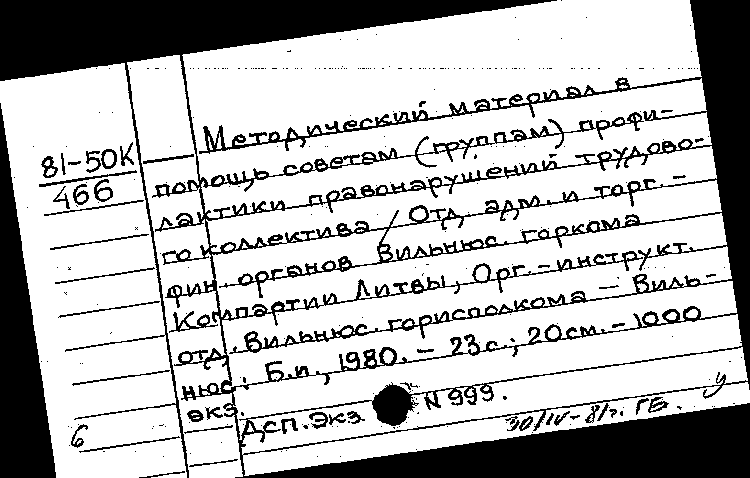 81-50К
466
Методический материал в
помощь советам (группам) профи-
лактики правонарушений трудово-
го коллектива / Отд. адм. и торг.-
фин. органов Вильнюс. горкома
Компартии Литвы, Орг.-инструкт.
отд. Вильнюс. горисполкома — Виль-
нюс: Б.и., 1980. - 23 с.; 20 см. - 1000
экз.
Дсп. Экз. N 999.
30/IV-81г. ГБ. У
6